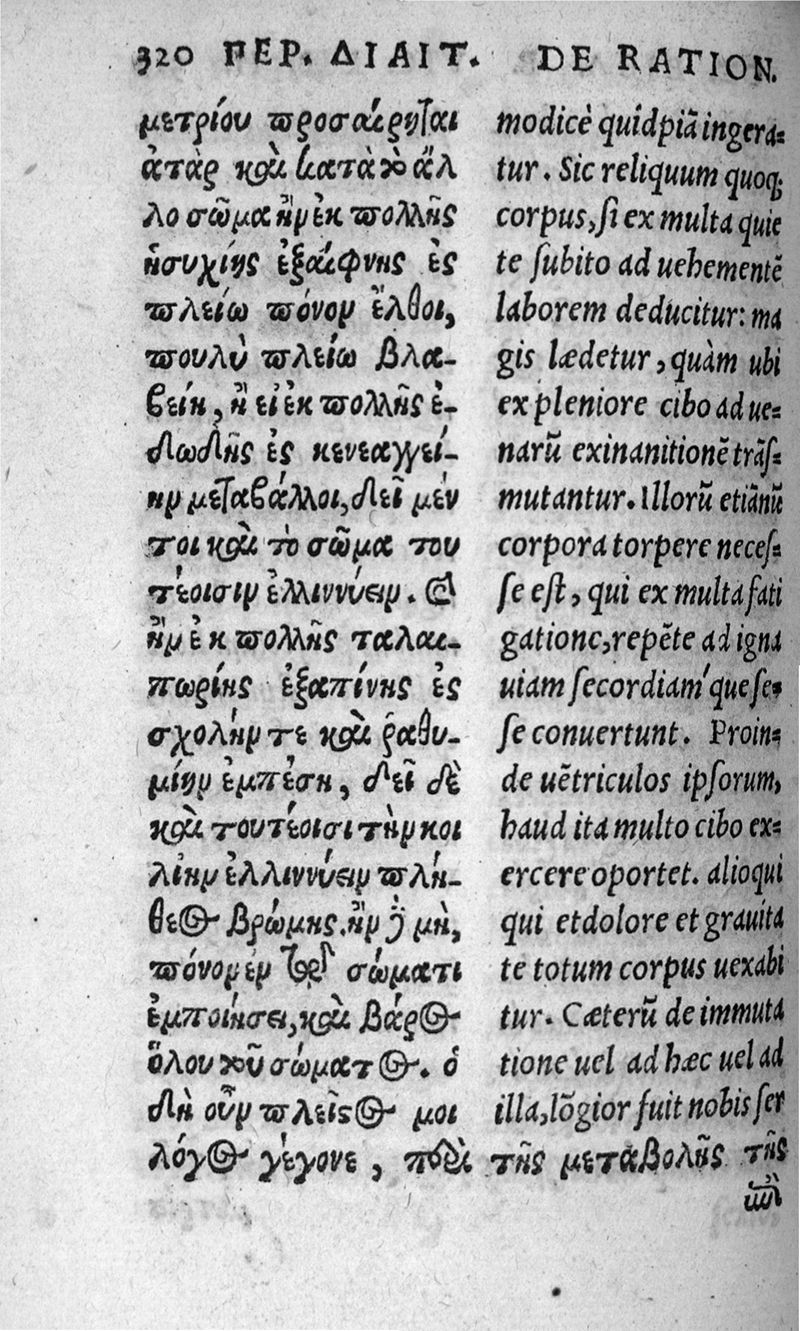 320 ΠΕΡ. ΔΙΑΙΤ. DE RATION.
μετρίου προσαίρηται
ἀτὰρ καὶ κατὰ τὸ ἄλ
λο σῶμα ἢν ἐκ πολλῆς
ἡσυχίης ἐξαίφνης ἐς
πλείω πόνον ἔλθοι,
πουλὺ πλείω βλα-
βείη, ἢ εἰ ἐκ πολλῆς ἐ-
δωδῆς ἐς κενεαγγεί-
ην μεταβάλλοι, δεῖ μέν
τοι καὶ τὸ σῶμα του
τέοισιν ἐλλιννύειν. καὶ
ἢν ἐκ πολλῆς ταλαι-
πωρίης ἐξαπίνης ἐς
σχολήν τε καὶ ῥαθυ-
μίην ἐμπέσῃ, δεῖ δὲ
καὶ τουτέοισι τὴν κοι
λίην ἐλλιννύειν πλή-
θεος βρώμης. ἢν δὲ μὴ,
πόνον ἐν τῷ σώματι
ἐμποιήσει, καὶ βάρος
ὅλου τοῦ σώματος. ὁ
δὴ οὖν πλεῖστος μοι
λόγος γέγονε, περὶ τῆς μεταβολῆς τῆς
modicè quidpiã ingera=
tur. Sic reliquum quoq;
corpus, ſi ex multa quie
te ſubito ad uehementẽ
laborem deducitur: ma
gis lædetur, quàm ubi
ex pleniore cibo ad ue=
narũ exinanitionẽ trãſ=
mutantur. Illorũ etiãnũ
corpora torpere neceſ=
ſe eſt, qui ex multa fati
gatione, repẽte ad igna
uiam ſecordiam'que ſe=
ſe conuertunt. Proin=
de uẽtriculos ipſorum,
haud ita multo cibo ex=
ercere oportet. alioqui
qui et dolore et grauita
te totum corpus uexabi
tur. Cæterũ de immuta
tione uel ad hæc uel ad
illa, lõgior fuit nobis ſer